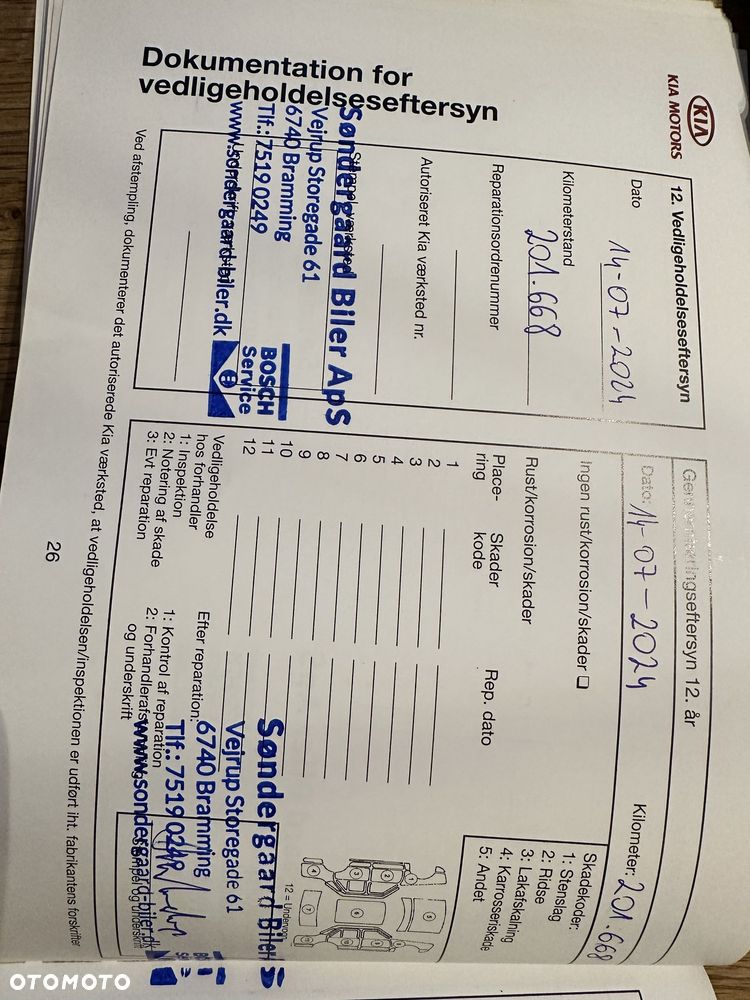 Dokumentation for
vedligeholdelseseftersyn
KIA
KIA MOTORS
12. Vedligeholdelseseftersyn
Dato
14-07-2024
Kilometerstand
201.668
Reparationsordrenummer
Autoriseret Kia værksted nr.
Søndergaard Biler ApS
Vejrup Storegade 61
6740 Bramming
Tlf.: 7519 0249
www.sondergaard-biler.dk
BOSCH
Service
Ved afstempling, dokumenterer det autoriserede Kia værksted, at vedligeholdelsen/inspektionen er udført iht. fabrikantens forskrifter
12. år
Dato: 14-07-2024
Kilometer: 201.668
Ingen rust/korrosion/skader
Rust/korrosion/skader
Place-
ring
Skader
kode
Rep. dato
1
2
3
4
5
6
7
8
9
10
11
12
Skadekoder:
1: Stenslag
2: Ridse
3: Lakafskalning
4: Karrosseriskade
5: Andet
Vedligeholdelse
hos forhandler
1: Inspektion
2: Notering af skade
3: Evt reparation
Efter reparation:
1: Kontrol af reparation
og underskrift
Søndergaard Biler
Vejrup Storegade 61
6740 Bramming
Tlf.: 7519 0249
www.sondergaard-biler.dk
26
OTOMOTO